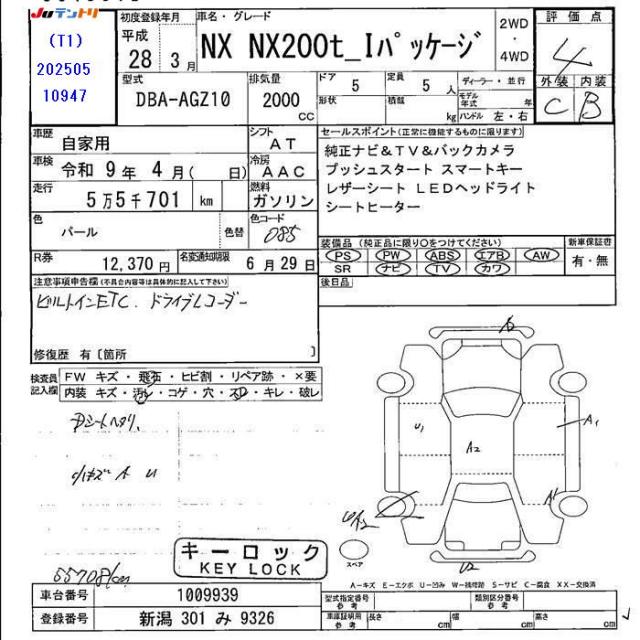 JUテントリ
(T1)
202505
10947
初度登録年月
平成
28 3月
車名・グレード
NX NX200t_Iパッケージ
2WD
・
4WD
評価点
4
外装 内装
C B
型式
DBA-AGZ10
排気量
2000
cc
ドア 5
形状
定員 5 人
積載 kg
ディーラー・並行
モデル年式 年
ハンドル 左・右
車歴 自家用
シフト AT
車検 令和 9年 4月( 日)
冷房 AAC
走行 5万5千701 km
燃料 ガソリン
色 パール 色替
色コード 085
R券 12,370円
名変通知期限 6月29日
セールスポイント(正常に機能するものに限ります。)
純正ナビ&TV&バックカメラ
プッシュスタート スマートキー
レザーシート LEDヘッドライト
シートヒーター
装備品(純正品に限り○をつけてください)
PS PW ABS エアB AW
SR ナビ TV カワ
新車保証書
有・無
後日品
注意事項申告欄(不具合内容等は具体的に記入して下さい)
ビルトインETC. ドライブレコーダー
修復歴 有〔箇所 〕
検査員記入欄
FW キズ・飛石・ヒビ割・リペア跡・×要
内装 キズ・汚レ・コゲ・穴・スレ・キレ・破レ
Dシートヘタリ.
内キズ A U
A1
U1
A2
A1
U2
スペア
55708km
キーロック
KEY LOCK
A-キズ E-エクボ U-凹み W-補修跡 S-サビ C-腐食 XX-交換済
車台番号 1009939
登録番号 新潟 301 み 9326
型式指定番号 参考
類別区分番号 参考
車庫証明用 参考
長さ cm 幅 cm 高さ cm